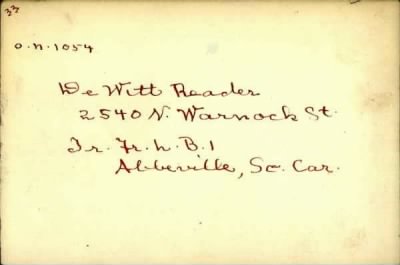 33
O.N. 1054
DeWitt Reader
2540 N. Warnock St.
Tr. Fr. h. B. 1
Abbeville, So. Car.